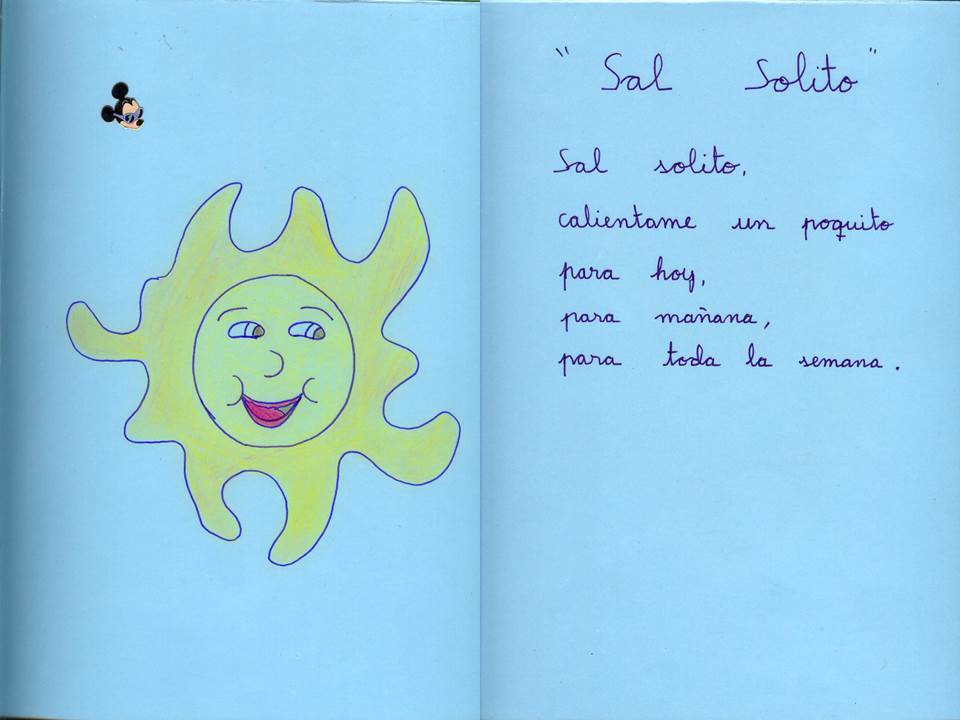 "Sal Solito"
Sal solito,
calientame un poquito
para hoy,
para mañana,
para toda la semana.